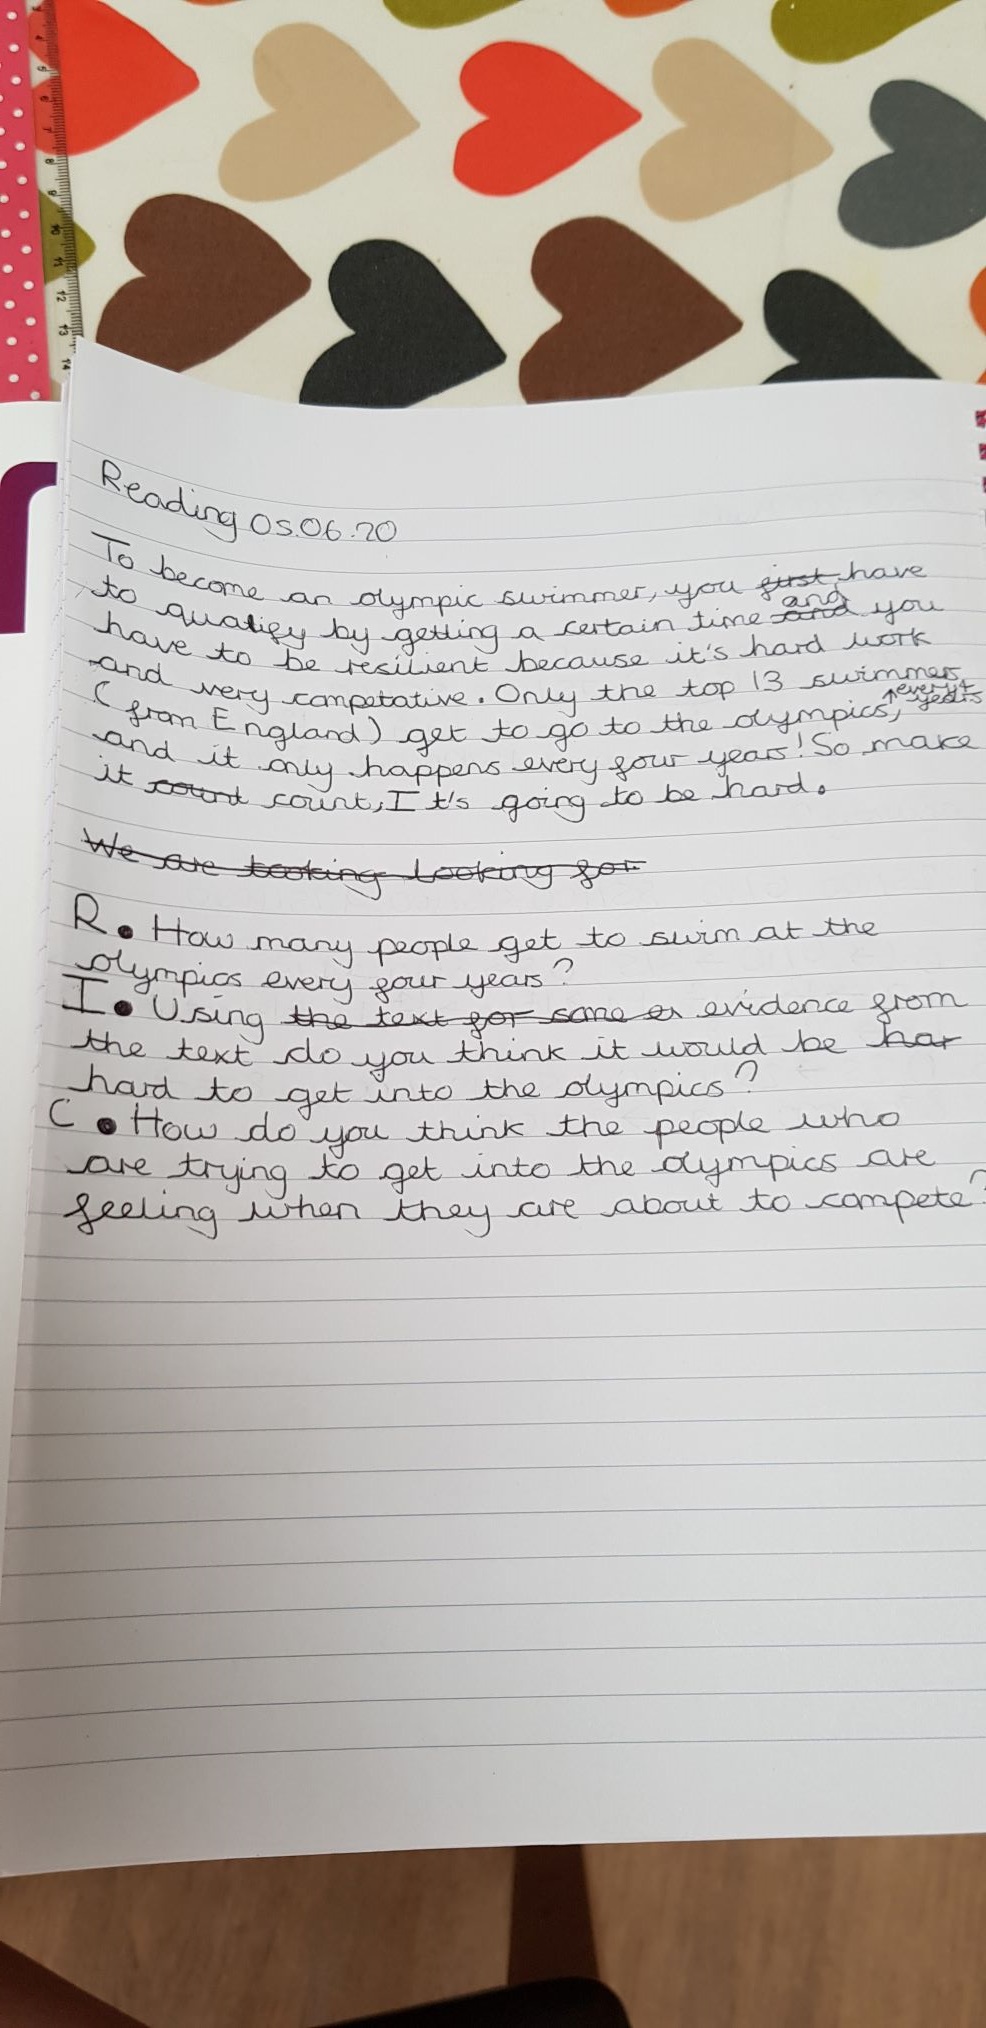 Reading 05.06.20
To become an olympic swimmer, you first have
to qualify by getting a certain time and and you
have to be resilient because it's hard work
and very competative. Only the top 13 swimmers
(from England) get to go to the olympics, every 4 years
and it only happens every four years! So make
it count count, It's going to be hard.
We are looking Looking for
R. How many people get to swim at the
olympics every four years?
I. Using the text for some e evidence from
the text do you think it would be har
hard to get into the olympics?
C. How do you think the people who
are trying to get into the olympics are
feeling when they are about to compete?